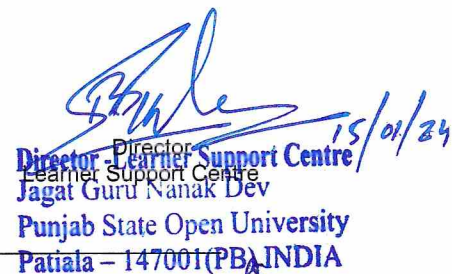 15/01/24
Director
Director - Learner Support Centre
Learner Support Centre
Jagat Guru Nanak Dev
Punjab State Open University
Patiala – 147001(PB) INDIA